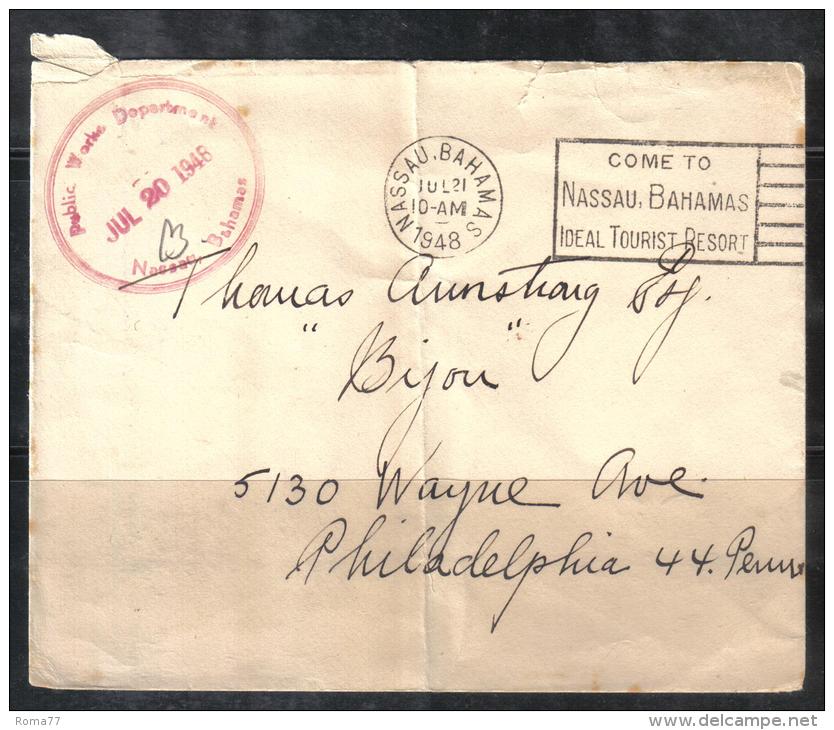 Public Works Department
JUL 20 1948
Nassau, Bahamas
NASSAU, BAHAMAS
JUL 21
10-AM
1948
COME TO
NASSAU, BAHAMAS
IDEAL TOURIST RESORT
Thomas Armstrong Esq.
"Bijou"
5130 Wayne Ave.
Philadelphia 44. Penn
Roma77
delcampe.net